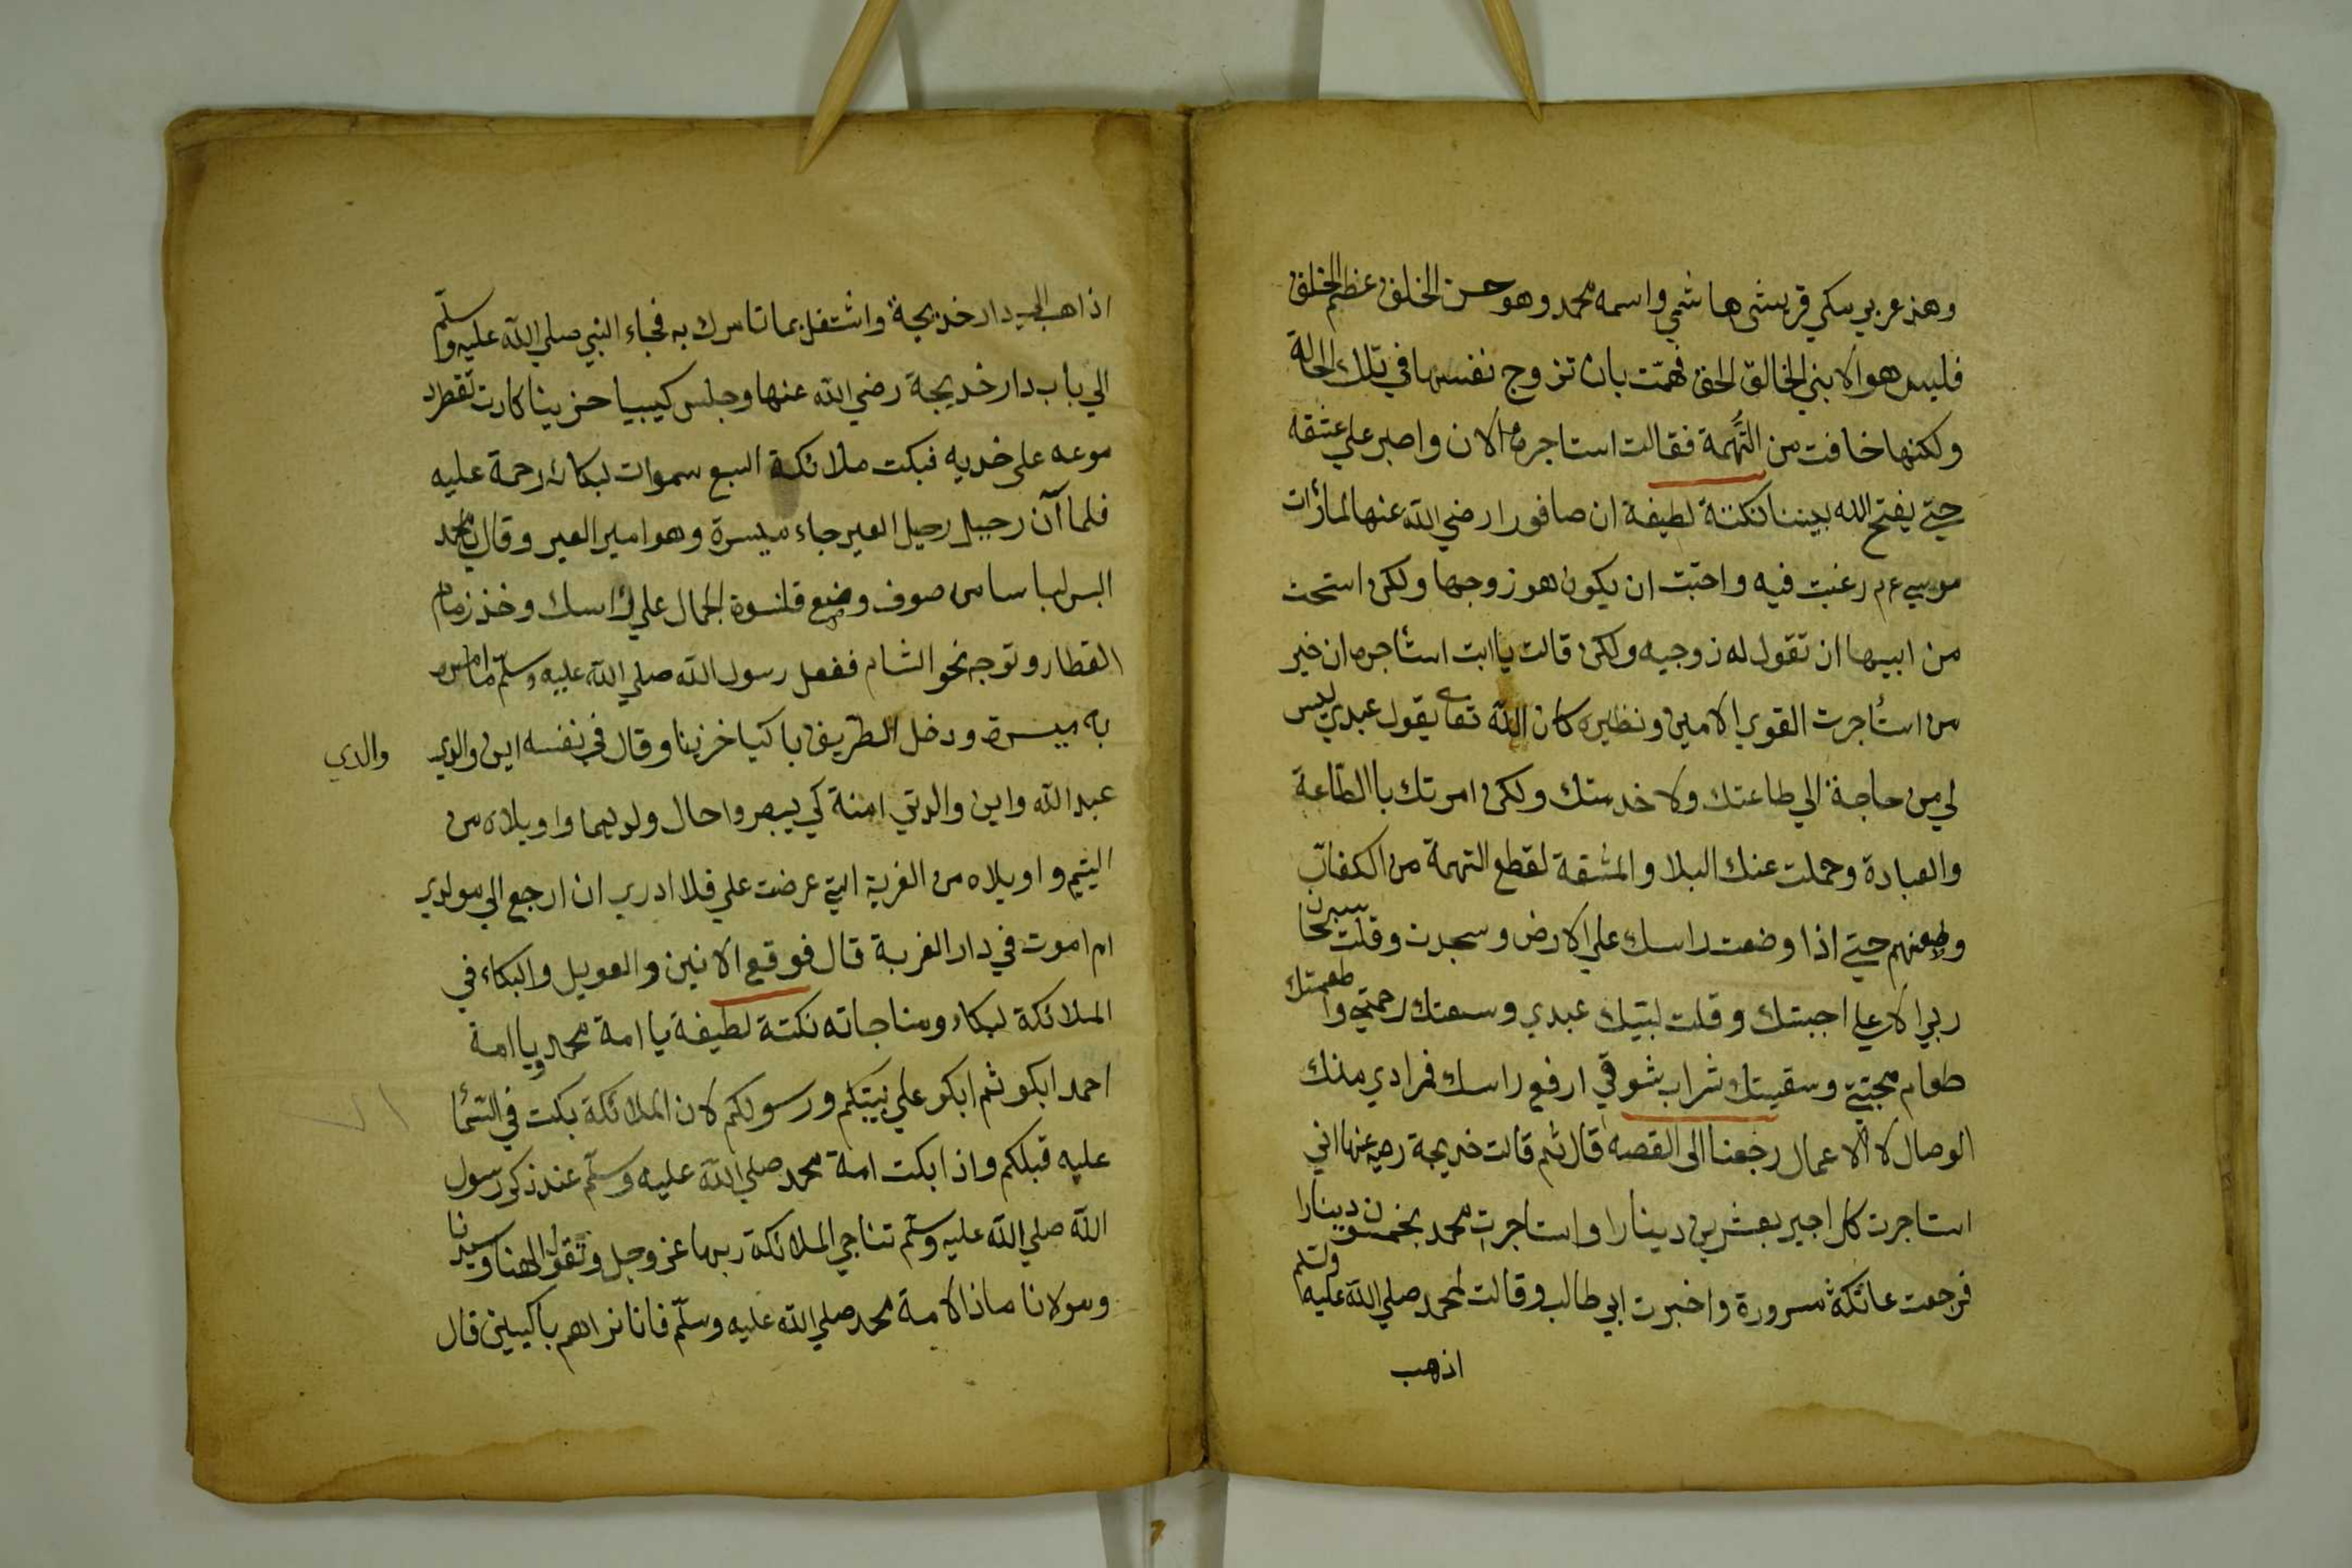 وهذ عربي مكي قريشي هاشمي واسمه محمد وهو حسن الخلق عظيم الخلق
فليس هو الا بني الخالق الحق فهمّت بان تزوج نفسها في تلك الحالة
ولكنها خافت من التُهمة فقالت استاجره الان واصبر علي عشقه
حتي يفتح الله بيننا نكتة لطيفة ان صافورا رضي الله عنها لما رأت
موسي ءم رغبت فيه واحبّت ان يكون هو زوجها ولكن استحت
من ابيها ان تقول له زوجيه ولكن قالت يا ابت استأجره ان خير
من استأجرت القوي الامين ونظيره كان الله تعا يقول عبدي ليس
لي من حاجة الي طاعتك ولا خدمتك ولكن امرتك باالطاعة
والعبادة وحملت عنك البلا والمشقة لقطع التهمة من الكفار
وطعنهم حتي اذا وضعت راسك علي الارض وسجدت وقلت سبحان
ربي الاعلي اجبتك وقلت لبّيك عبدي وسعتك رحمتي واطعمتك
طعام محبتي وسقيتك شراب شوقي ارفع راسك فمرادي منك
الوصال لا الاعمال رجعنا الى القصه قال ثم قالت خديجة رضي عنها اني
استاجرت كل اجير بعشرين دينارا واستاجرت محمد بخمسون دينارا
فرجعت عاتكة مسرورة واخبرت ابي طالب وقالت لمحمد صلي الله عليه وسلم
اذهب
اذاهب الي دار خديجة واشتغل بما تامرك به فجاء النبي صلي الله عليه وسلّم
الي باب دار خديجة رضي الله عنها وجلس كيبيا حزينا كارت تقطر د
موعه على خديه فبكت ملائكة السبع سموات لبكائه رحمة عليه
فلما آن رحيل رحيل العير جاء ميسرة وهو امير العير وقال يا محمد
البس لباسا من صوف وضع قلنسوة الجمال علي راسك وخذ زمام
القطار وتوجه نحو الشام ففعل رسول الله صلي الله عليه وسلّم ما امره
به ميسرة ودخل الطريق باكيا خزينا وقال في نفسه اين والدي
والدي
عبد الله واين والدتي امنة كي يبصروا حال ولديهما واويلاه من
اليتيم واويلاه من الغربة التي عرضت علي فلا ادري ان ارجع الي مولدي
ام اموت في دار الغربة قال فوقع الانين والعويل والبكاء في
الملائكة لبكاء ومناجاته نكتة لطيفة يا امة محمد ويا امة
احمد ابكو ثم ابكو علي نبيّكم ورسولكم لان الملائكة بكت في السّما
عليه قبلكم واذا بكت امة محمد صلي الله عليه وسلّم عند ذكر رسول
الله صلي الله عليه وسلّم تناجي الملائكة ربها عز وجل وتقول الهنا وسيدنا
ومولانا ماذا لامة محمد صلي الله عليه وسلّم فانا نراهم باكيين قال